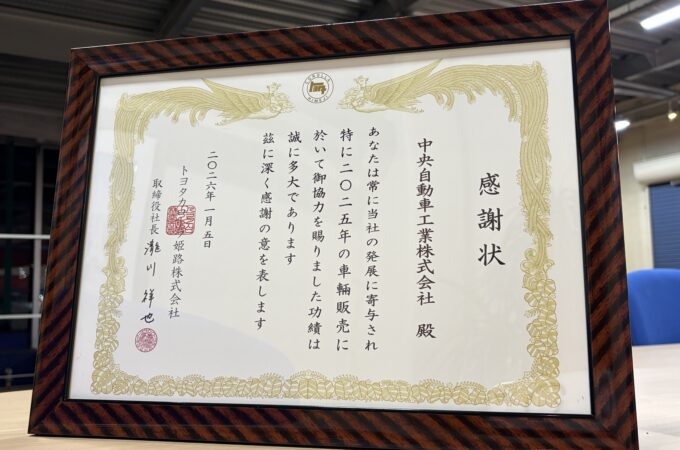 感謝状
中央自動車工業株式会社 殿
あなたは常に当社の発展に寄与され
特に二〇二五年の車輛販売に
於いて御協力を賜りました功績は
誠に多大であります
茲に深く感謝の意を表します
二〇二六年一月五日
トヨタカローラ姫路株式会社
取締役社長 瀧川 祥也